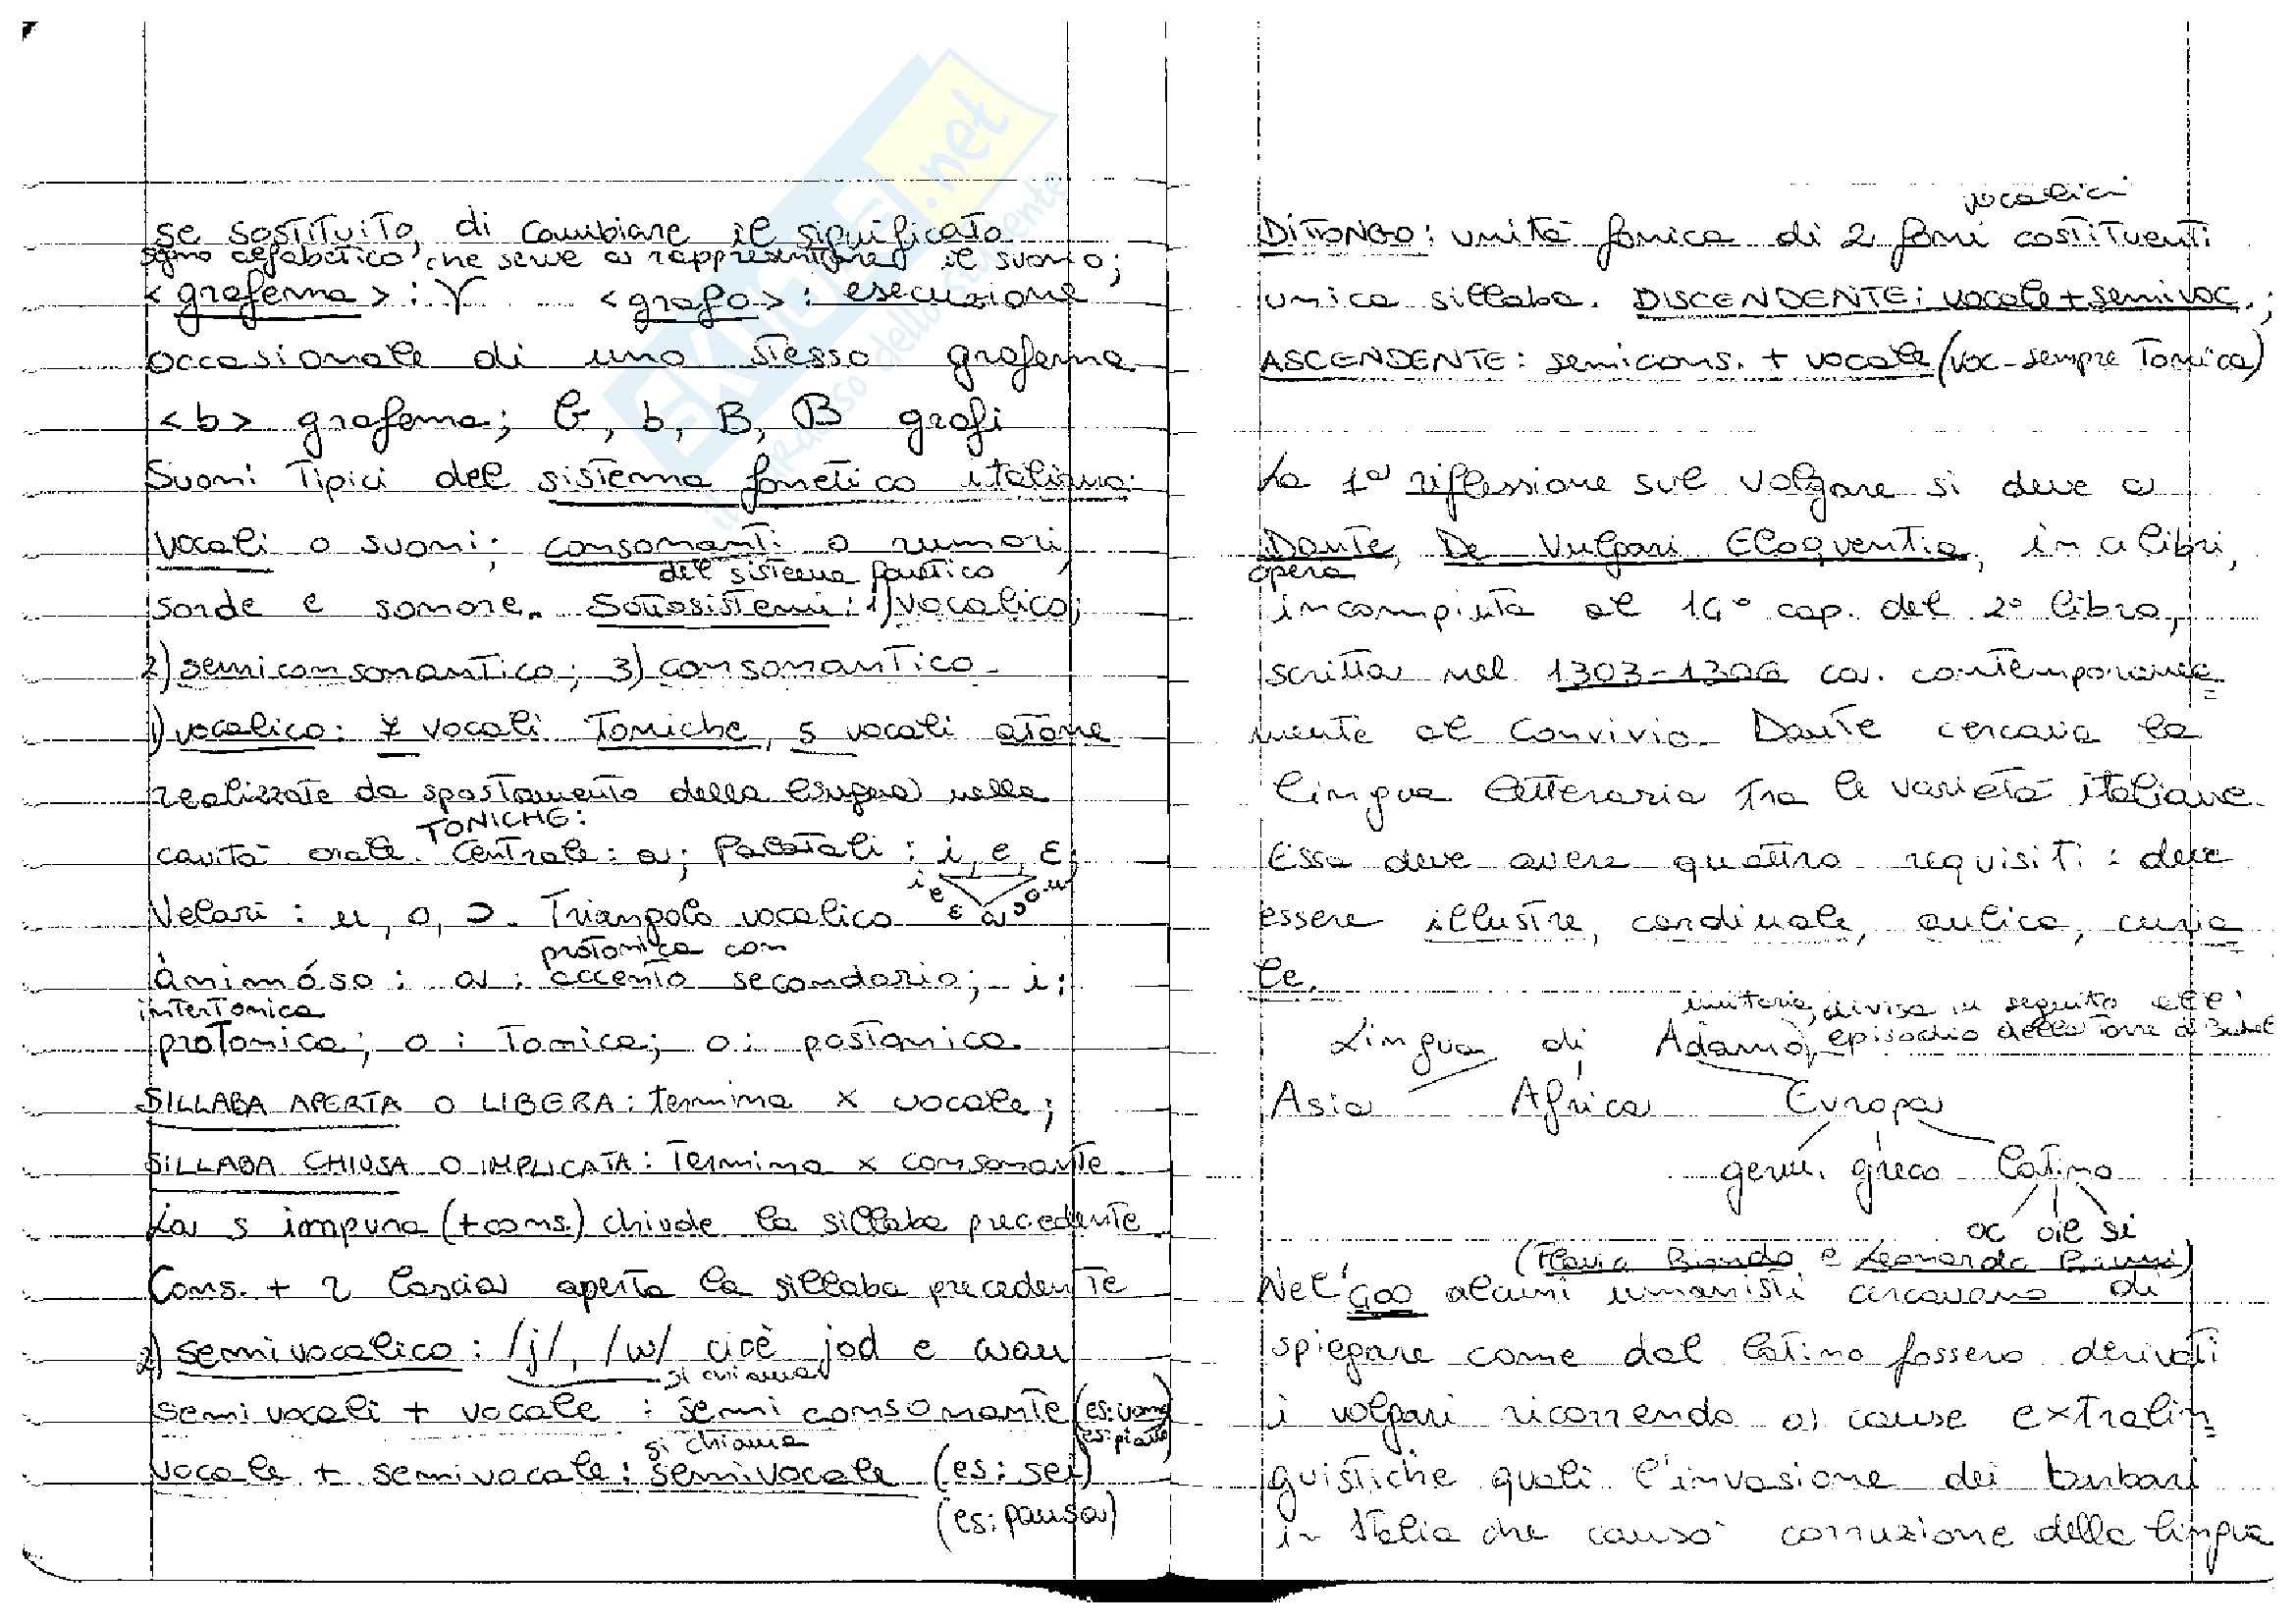 se sostituito, di cambiare il significato
segno alfabetico che serve a rappresentare il suono;
<grafema> : r <grafo> : esecuzione
occasionale di uno stesso grafema
<b> grafema; b, b, B, B grafi
Suoni tipici del sistema fonetico italiano:
vocali o suoni; consonanti o rumori,
del sistema fonetico
sorde e sonore. Sottosistemi: 1) vocalico;
2) semiconsonantico; 3) consonantico.
1) vocalico: 7 vocali toniche, 5 vocali atone
realizzate da spostamento della lingua nella
TONICHE:
cavità orale. Centrale: a; Palatali: i, e, ɛ;
Velari: u, o, ɔ. Triangolo vocalico
i e ɛ a ɔ o u
protonica con
ànimóso: a: accento secondario; i:
intertonica
protonica; o: tonica; o: postonica.
SILLABA APERTA O LIBERA: termina x vocale;
SILLABA CHIUSA O IMPLICATA: termina x consonante
La s impura (+cons.) chiude la sillaba precedente
Cons. + r lascia aperta la sillaba precedente
2) semivocalico: /j/, /w/ cioè jod e wau
si chiama
semivocali + vocale : semiconsonante (es: uomo)
(es: piatto)
si chiama
vocale + semivocale: semivocale (es: sei)
(es: pausa)
vocalici
DITTONGO: unità fonica di 2 foni costituenti
unica sillaba. DISCENDENTE: vocale + semivoc.;
ASCENDENTE: semicons. + vocale (voc. sempre tonica)
La 1ª riflessione sul volgare si deve a
Dante, De Vulgari Eloquentia, in 2 libri,
opera
incompiuta al 14° cap. del 2° libro,
scritta nel 1303-1306 ca. contemporanea=
mente al Convivio. Dante cercava la
lingua letteraria tra le varietà italiane.
Essa deve avere quattro requisiti: deve
essere illustre, cardinale, aulica, curia=
le.
unitaria, divisa in seguito all'
Lingua di Adamo, episodio della Torre di Babele
Asia Africa Europa
germ. greco latino
oc oil sì
(Flavio Biondo e Leonardo Bruni)
Nel '400 alcuni umanisti cercavano di
spiegare come dal latino fossero derivati
i volgari ricorrendo a cause extralin=
guistiche quali l'invasione dei barbari
in Italia che causò corruzione della lingua
SKUOLA.net
il paradiso dello studente